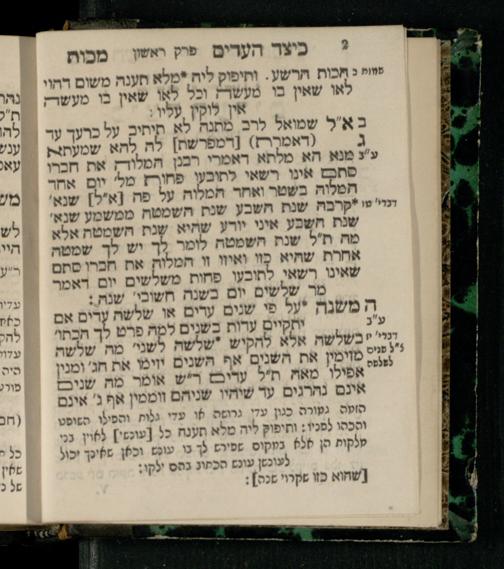 2 כיצד העדים פרק ראשון מכות
שמות ב חכות הרשע. ותיפוק ליה *מלא תענה משום דהוי
לאו שאין בו מעשה וכל לאו שאין בו מעשה
אין לוקין עליו:
ב א"ל שמואל לרב מתנה לא תיתיב על כרעך עד
ג (דאמרת) [דמפרשת] לה להא שמעתא
ע"ב מנא הא מלתא דאמרי רבנן המלוה את חברו
סתם אינו רשאי לתובעו פחות מל' יום אחד
המלוה בשטר ואחד המלוה על פה [א"ל] שנא'
דברי' טו *קרבה שנת השבע שנת השמטה ממשמע שנא'
שנת השבע איני יודע שהיא שנת השמטה אלא
מה ת"ל שנת השמטה לומר לך יש לך שמטה
אחרת שהיא כזו ואיזו זו המלוה את חברו סתם
שאינו רשאי לתובעו פחות משלשים יום דאמר
מר שלשים יום בשנה חשובי' שנה:
ה משנה *על פי שנים עדים או שלשה עדים אם
ע"ב יתקיים עדות בשנים למה פרט לך הכתו'
דברי' יז בשלשה אלא להקיש *שלשה לשני' מה שלשה
ל"ל שנים מזימין את השנים אף השנים יזימו את הג' ומנין
לשלשה אפילו מאה ת"ל עדים ר"ש אומר מה שנים
אינם נהרגים עד שיהיו שניהם זוממין אף ג' אינם
הזמה גמורה כגון עדי גרושה או עדי גלות והפילו השופט
והכהו לפניו: ותיפוק ליה מלא תענה כל [עונשי] לאוין בני
מלקות הן אלא במקום שפירש לך בו עונש וכאן שאינך יכול
לעונשן עונש הכתוב בהם ילקו:
[שהוא כזו שקרוי שנה]: